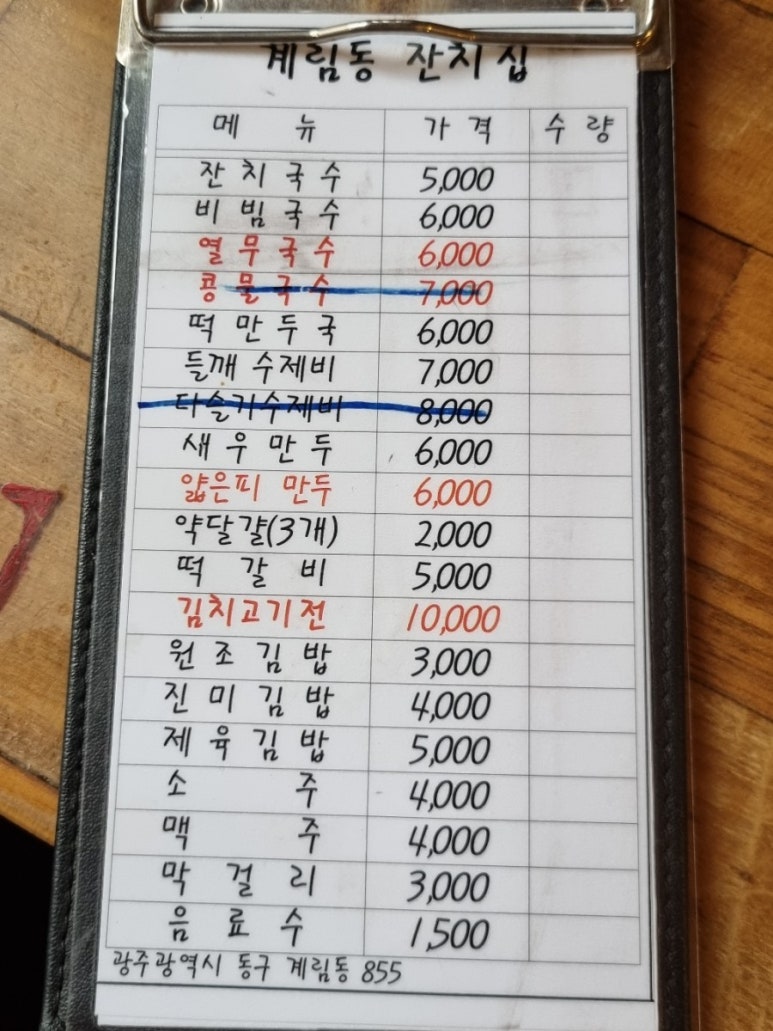 계림동 잔치집
메 뉴 가 격 수 량
잔 치 국 수 5,000
비 빔 국 수 6,000
열 무 국 수 6,000
콩 물 국 수 7,000
떡 만 두 국 6,000
들깨 수제비 7,000
다슬기수제비 8,000
새 우 만 두 6,000
얇은피 만두 6,000
약달걀(3개) 2,000
떡 갈 비 5,000
김치고기전 10,000
원 조 김 밥 3,000
진 미 김 밥 4,000
제 육 김 밥 5,000
소 주 4,000
맥 주 4,000
막 걸 리 3,000
음 료 수 1,500
광주광역시 동구 계림동 855